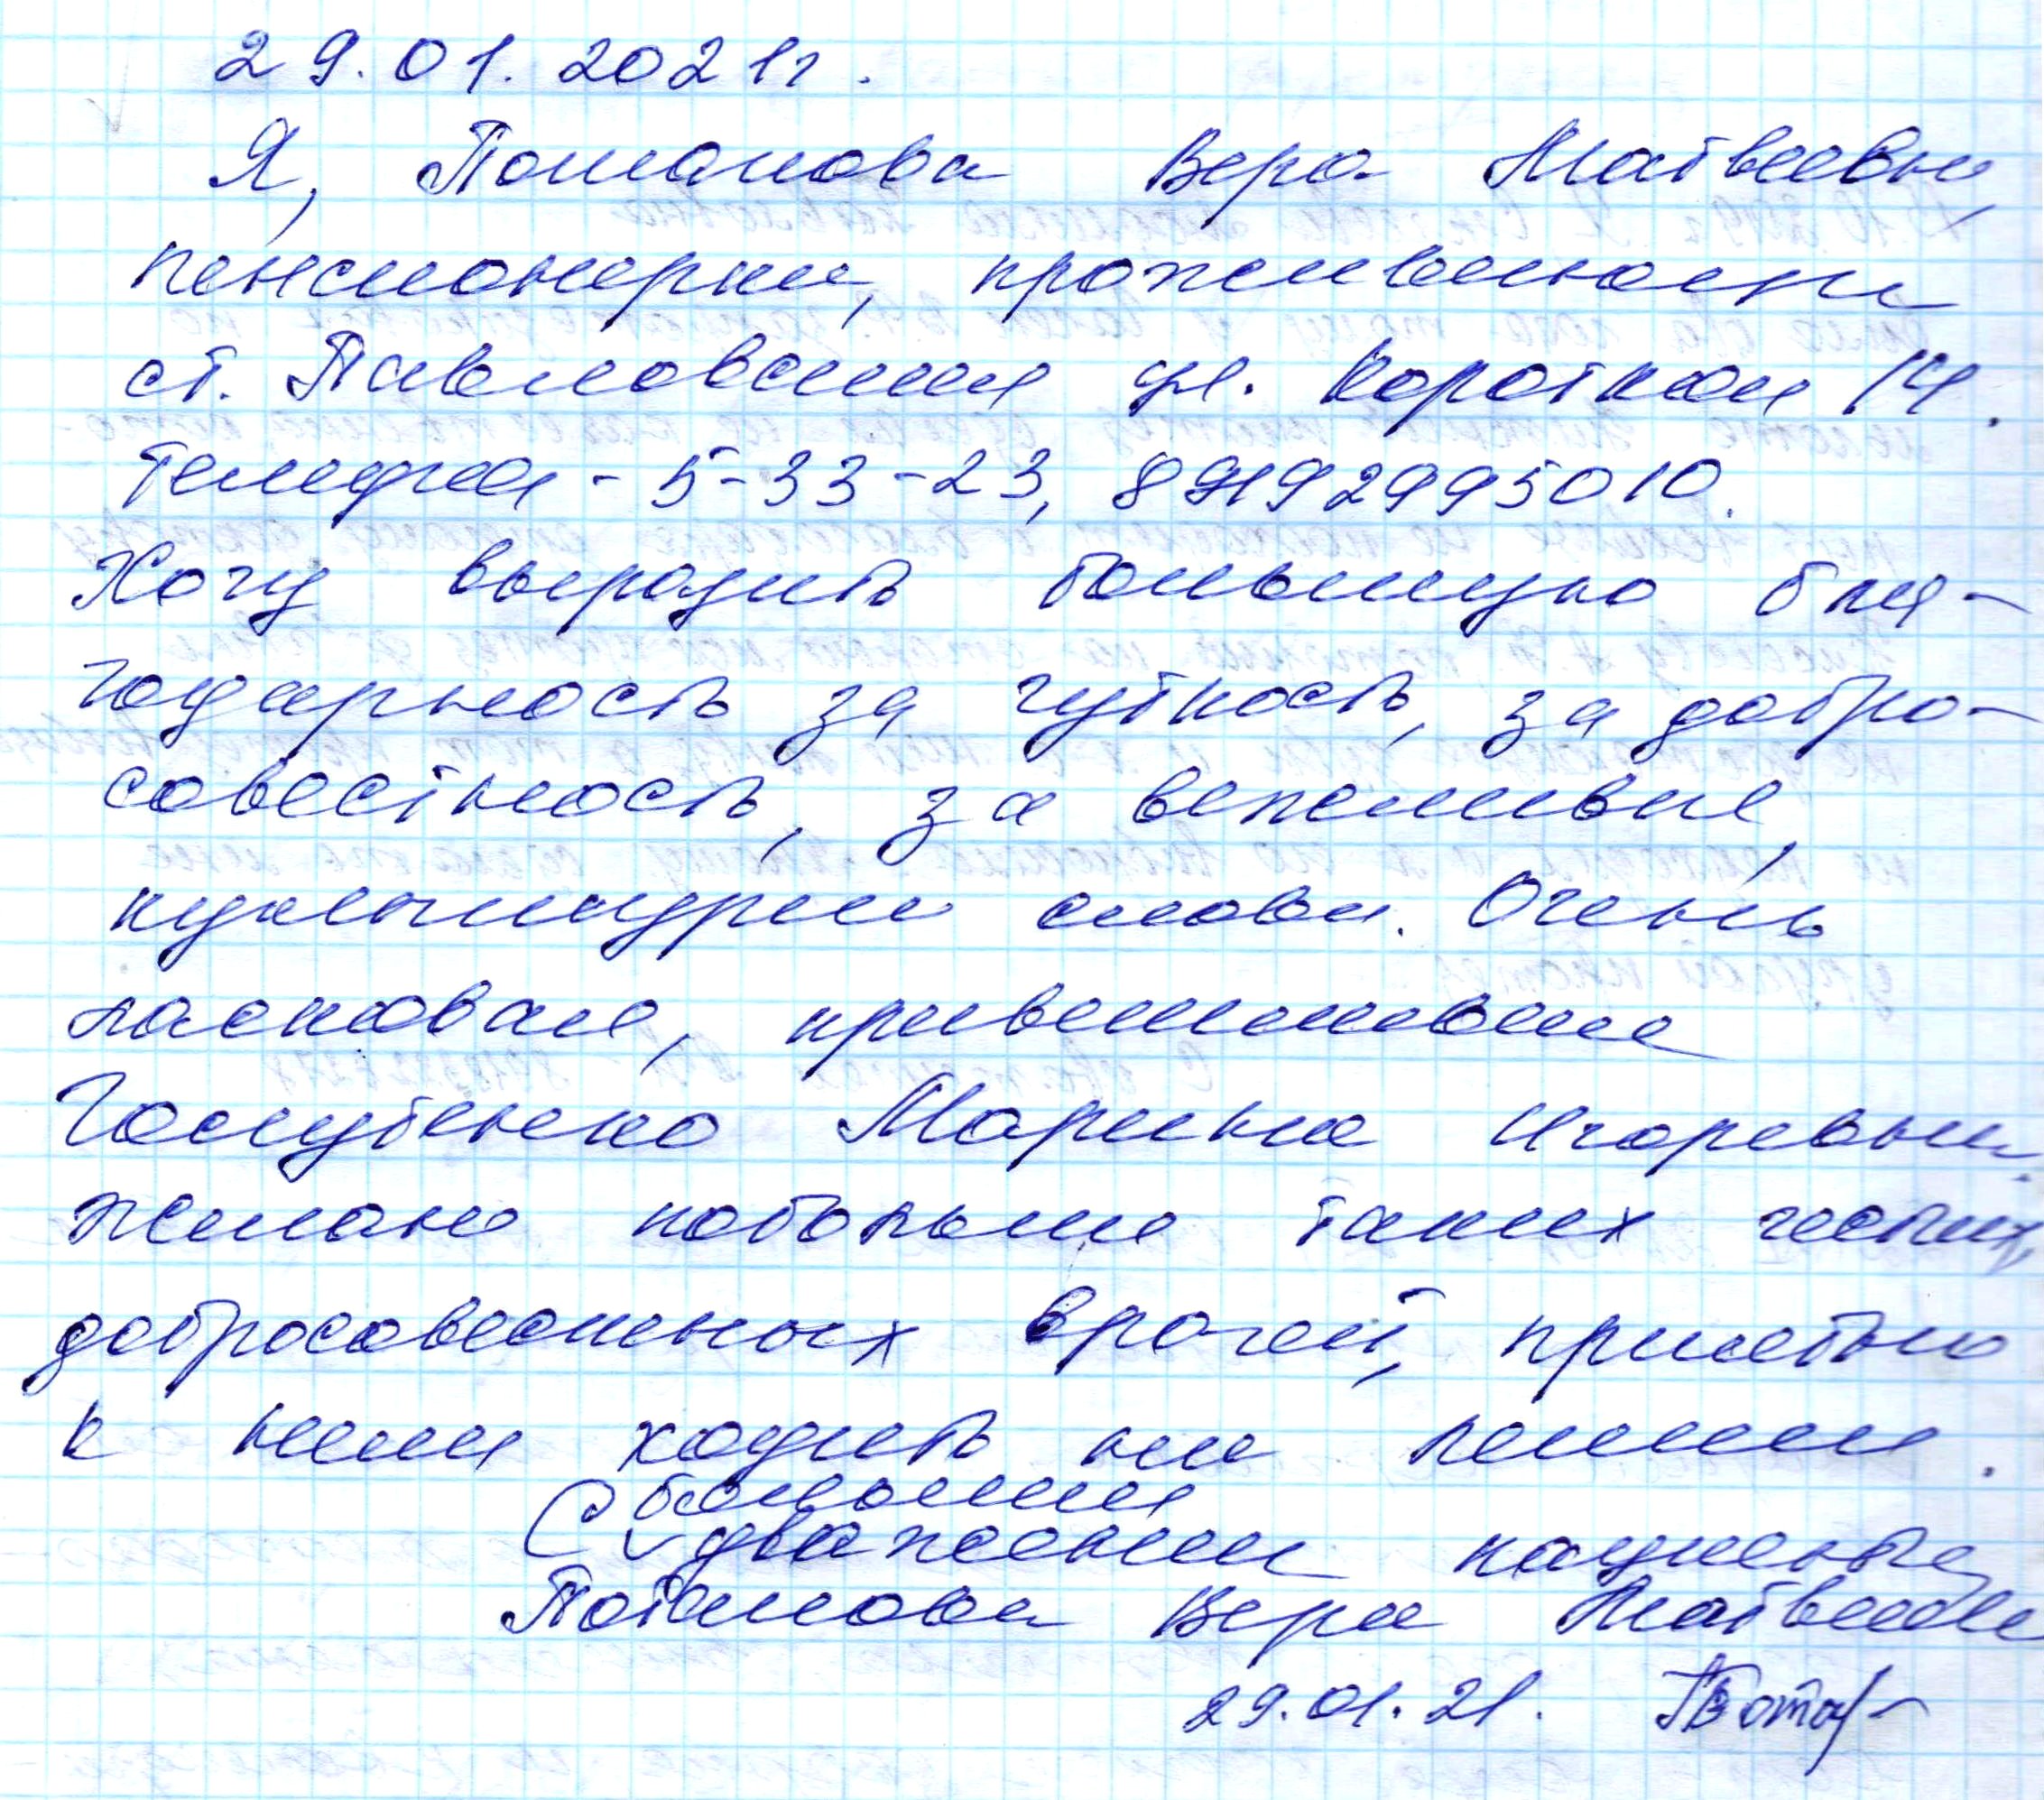 29.01.2021г.
Я, Потапова Вера Матвеевна,
пенсионерка, проживающая
ст. Павловская ул. Короткая 14.
Телефон - 5-33-23, 89192995010.
Хочу выразить большую бла-
годарность за чуткость, за добро-
совестность, за вежливые,
культурные слова. Очень
ласковая, приветливая
Голубенко Марина Игоревна.
Желаю побольше таких честных,
добросовестных врачей, приятно
к ним ходить на прием.
С большим
уважением пациент
Потапова Вера Матвеевна
29.01.21.